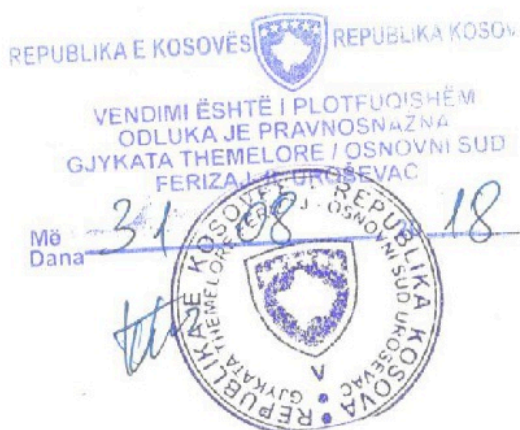 REPUBLIKA E KOSOVËS REPUBLIKA KOSOV
VENDIMI ËSHTË I PLOTFUQISHËM
ODLUKA JE PRAVNOSNAŽNA
GJYKATA THEMELORE / OSNOVNI SUD
FERIZAJ UROŠEVAC
Më 31 08 18
Dana
REPUBLIKA E KOSOVËS REPUBLIKA KOSOVA
GJYKATA THEMELORE FERIZAJ - OSNOVNI SUD UROŠEVAC
V